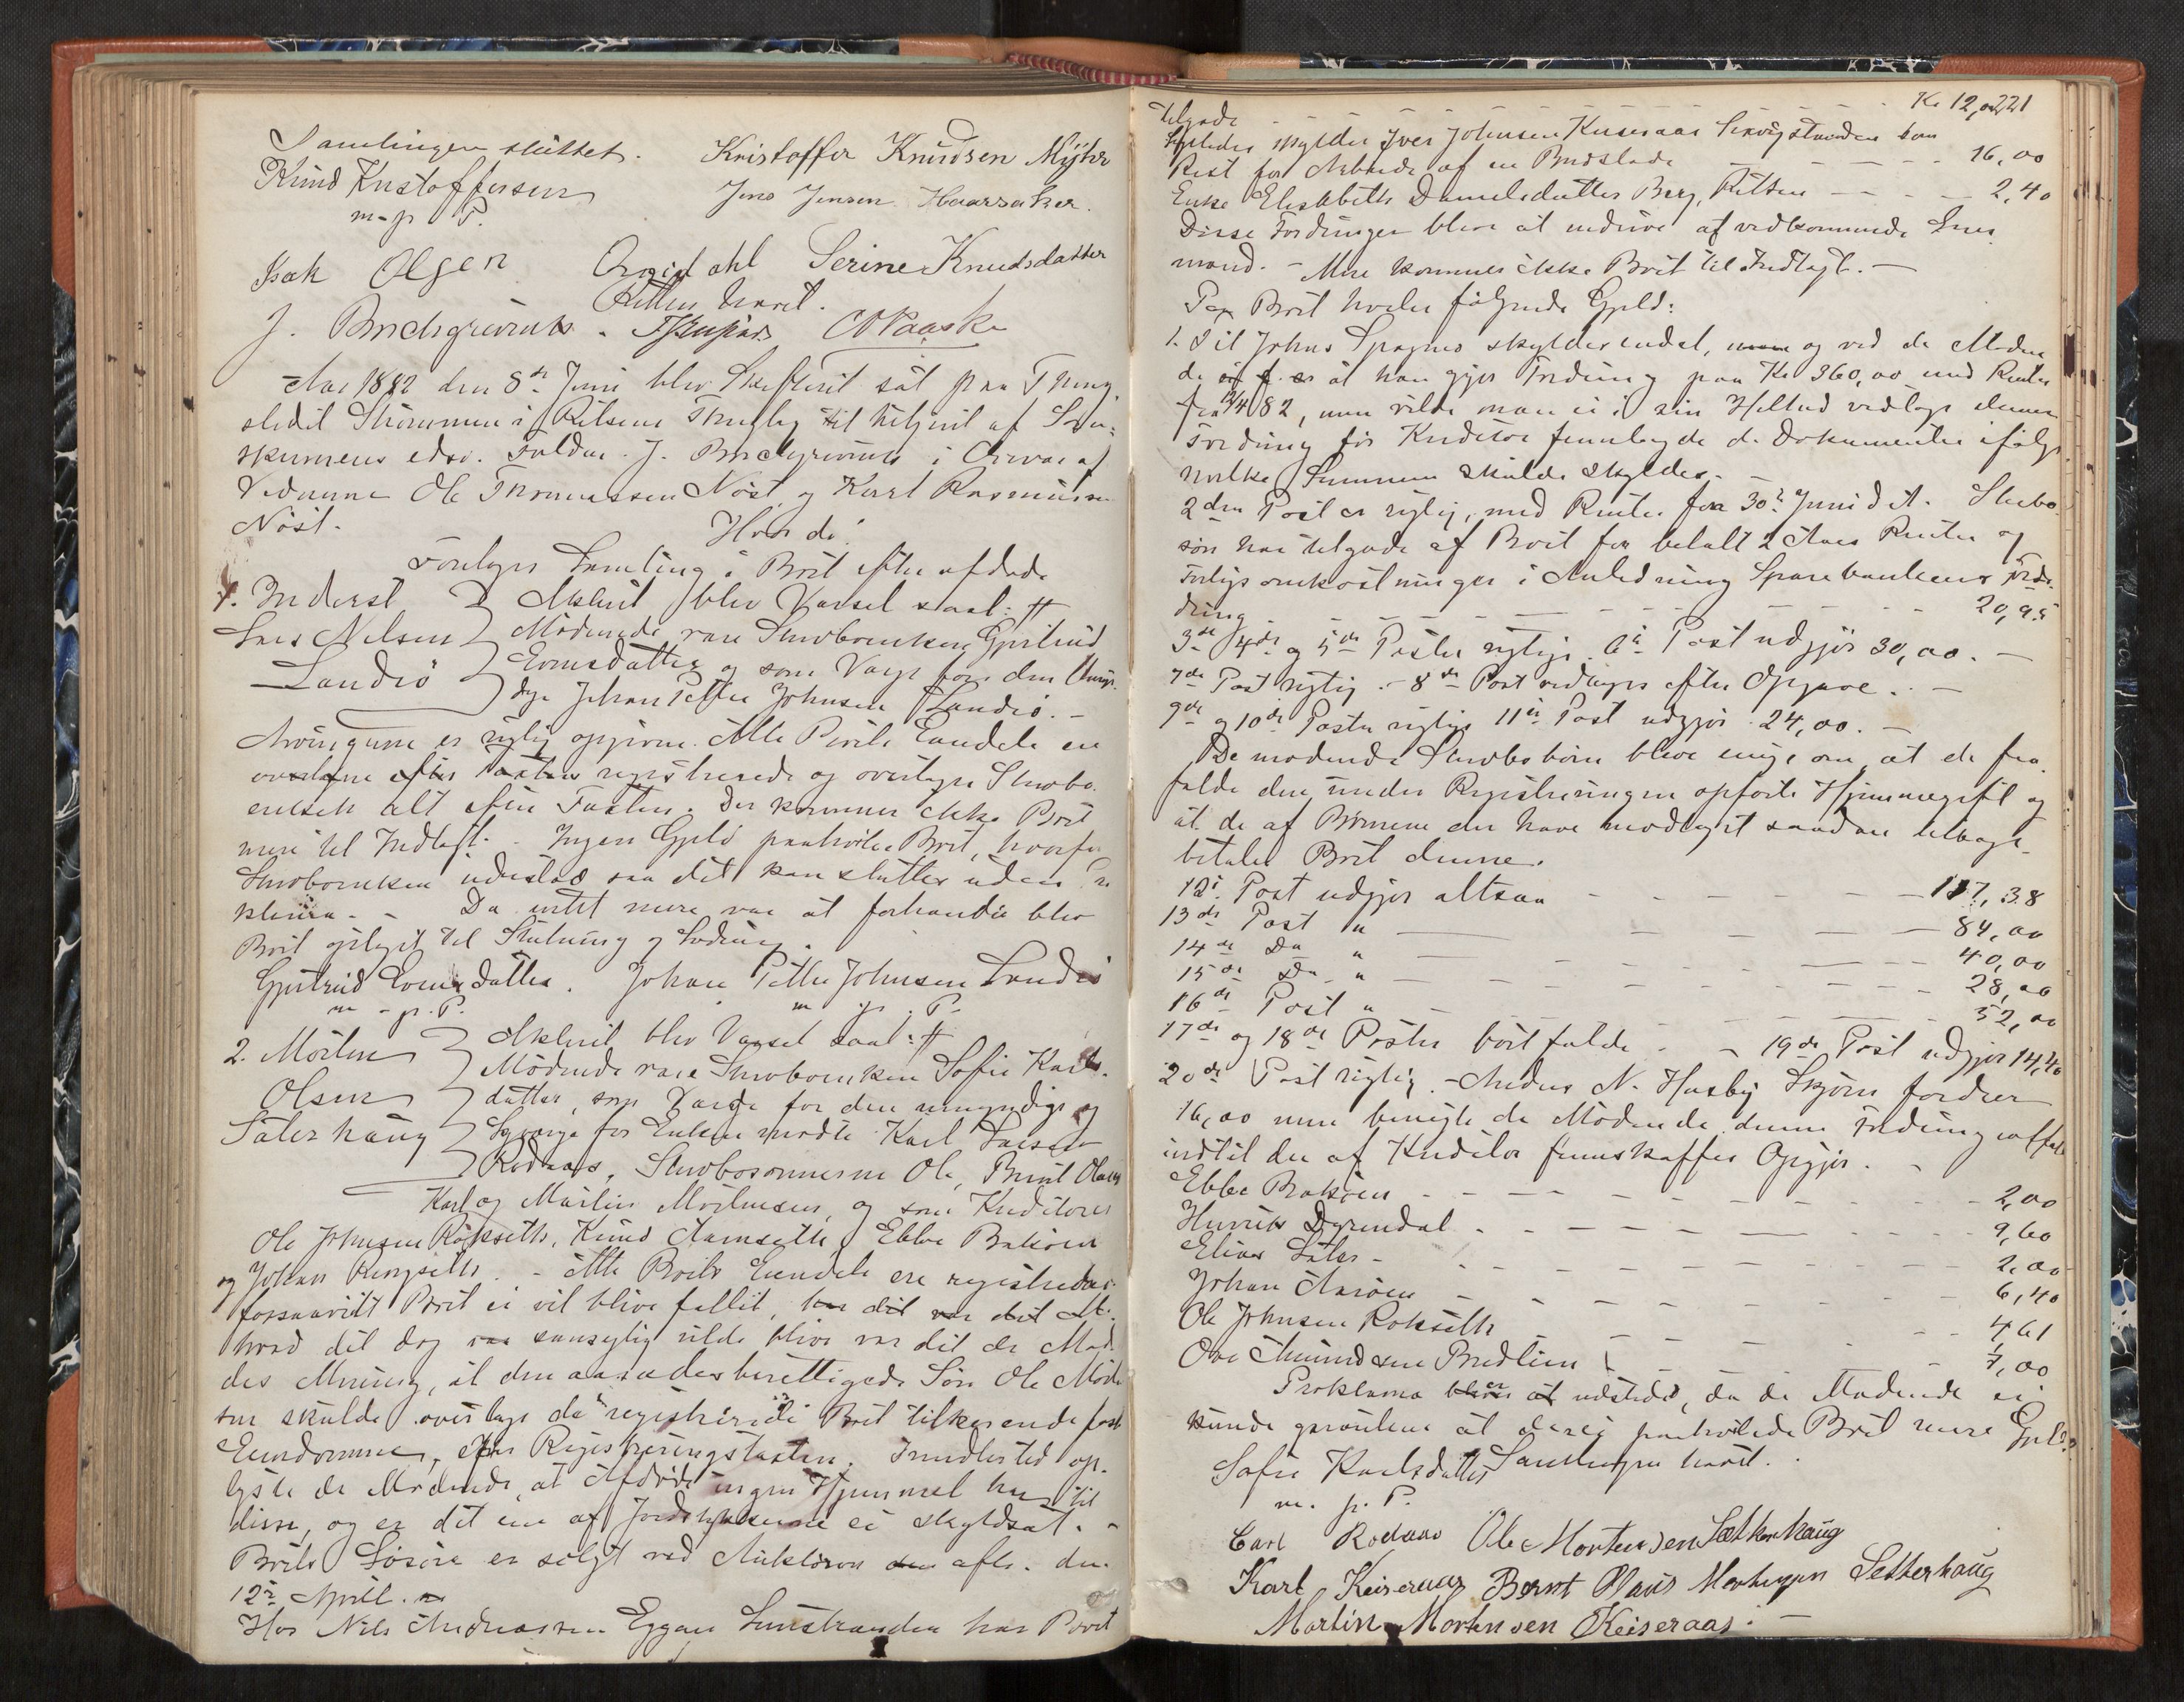 Samlingen sluttet. Kristoffer Knudsen Myhr
Knud Kristoffersen Jens Jensen Haarsaker.
m. p. P.
Isak Olsen Serine Knudsdatter
Retten hævet.
J. Brochgrevink.
Aar 1882 den 8de Juni blev Skifteret sat paa Thing
stedet Strømmen i Rissens Thinglag betjent af Sorn-
skriverens edsv. Fuldm. J. Brochgrevink i Overvær af
Vidnerne Ole Thomassen Næst og Kurt Rasmussen
Næst.
Hvor da
foretoges Samling i Boet efter afdøde
1. Inderst Aktent blev Varsel saal: #
Lars Nilsen Mødende vare Stervboenken Gjertrud
Landrø Evensdatter og som Værge for den Umyn-
dige Johan Petter Johnsen Landrø. -
Arvingerne er rigtig opgivne. Alle Boets Eiendele ere
registrerede og overtages Stervbo
enken alt efter Taxten. Der kommer ikke Boet
mere til Indtægt. - Ingen Gjeld paahviler Boet, hvorfor
Stervboenken udestod saa det kan sluttes uden Pro
klama. - Da intet mere var at forhandle blev
Boet optaget til Slutning og Lodning.
Gjertrud Evensdatter. Johan Petter Johnsen Landrø
m. p. P. m. p. P.
2. Morten Aktent blev Varsel saal: #
Olsen Mødende vare Stervboenken Sofie Karls-
Sæterhaug datter, som Værge for den umyndige og
Lavværge for Enken mødte Karl Larsen
Rødaas, Stervbosønnerne Ole, Bernt Olaus
Karl og Martin Mortensen, og som Kreditorer
Ole Johnsen Rokseth, Knud Aamseth, Ebbe Bakøen
og Johan Ringseth. - Alle Boets Eiendele ere registrerede
forsaavidt Boet ei vil blive fallit,
hvad det dog sansynlig vilde blive var det de Møden
des Mening, at den aasædesberettigede Søn Ole Morten
sen skulde overtage de registrerede Boet tilhørende faste
Eiendomme, efter Registreringstaxten. Imidlertid op-
lyste de Mødende, at Afdøde ingen Hjemmel har til
disse, og er det ene af Jordstykkerne ei skyldsat. -
Boets Løsøre er solgt ved Auktion afh. den
12te April.
Hos Nils Andreassen Eggen Sørstranden har Boet
221
tilgode Kr 12,00
Ligeledes skylder Iver Johnsen Kuseraas Sørvigstranden som
Rest for Arbeide af en Budstade 16,00
Enke Elisabeth Danielsdatter Berg, Ritten 2,40
Disse Fordringer blive at inddrive af vedkommende Lens
mand. - Mere kommer ikke Boet til Indtægt. -
Paa Boet hviler følgende Gjeld:
1. Til Johns Spagnes skyldes endel, og ved de Møden
de at han gjør Fordring paa Kr 360,00 med Renter
fra 13/4 82, men vilde man ei i sin Helhed vedtage denne
Fordring før Kreditor fremlagde de Dokumenter ifølge
hvilke Summen skulde skyldes. -
2den Post er rigtig, med Renter fra 30te Juni d. A. Stervbo
søn har tilgode af Boet for betalt 2 Aars Renter og
Forligsomkostninger i Anledning Sparebankens Fordr-
dring 20,95
3de 4de og 5te Poster rigtige. 6te Post udgjør 30,00. -
7de Post rigtig. - 8de Post vedtages efter Opgave. -
9de og 10de Poster rigtige 11te Post udgjør 24,00. -
De mødende Stervbobørn bleve enige om at de fra
falde den under Registreringen opførte Hjemmegift og
at de af Børnene der have modtaget saadan tilbage-
betaler Boet denne.
12te Post udgjør altsaa 117,38
13de Post " 84,00
14de Do " 40,00
15de Do " 28,00
16de Post " 52,00
17de og 18de Poster bortfalde. - 19de Post udgjør 14,40
20de Post rigtig. - Anders N. Husby Skjørn fordrer
16,00 men benegte de Mødende denne Fordring
indtil der af Kreditor fremskaffes Opgjør. -
Ebbe Bakøen 2,00
Henrik Dyrendal 9,60
Elias Sæter 2,00
Johan Aasøen 6,40
Ole Johnsen Rokseth 4,61
Ove Amundsen Bredlien 7,00
Proklama bliver at udstede, da de Mødende ei
kunde garantere at der ei paahvilede Boet mere Gjeld.
Sofie Karlsdatter Samlingen hævet.
m. p. P.
Carl Rødaas Ole Mortensen Sætherhaug
Karl Keiseraas Bernt Olaus Mortensen Setherhaug
Martin Mortensen Keiseraas. -